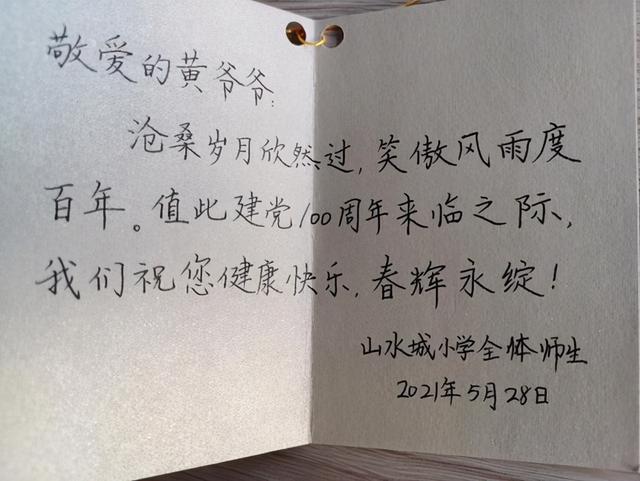 敬爱的黄爷爷:
沧桑岁月欣然过,笑傲风雨度
百年。值此建党100周年来临之际,
我们祝您健康快乐,春辉永绽!
山水城小学全体师生
2021年5月28日